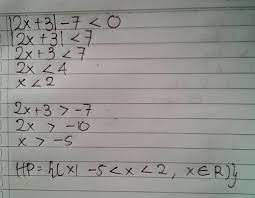 |2x+3|-7 < 0
|2x+3| < 7
2x+3 < 7
2x < 4
x < 2
2x+3 > -7
2x > -10
x > -5
HP = {(x| -5 < x < 2, x ∈ R)}